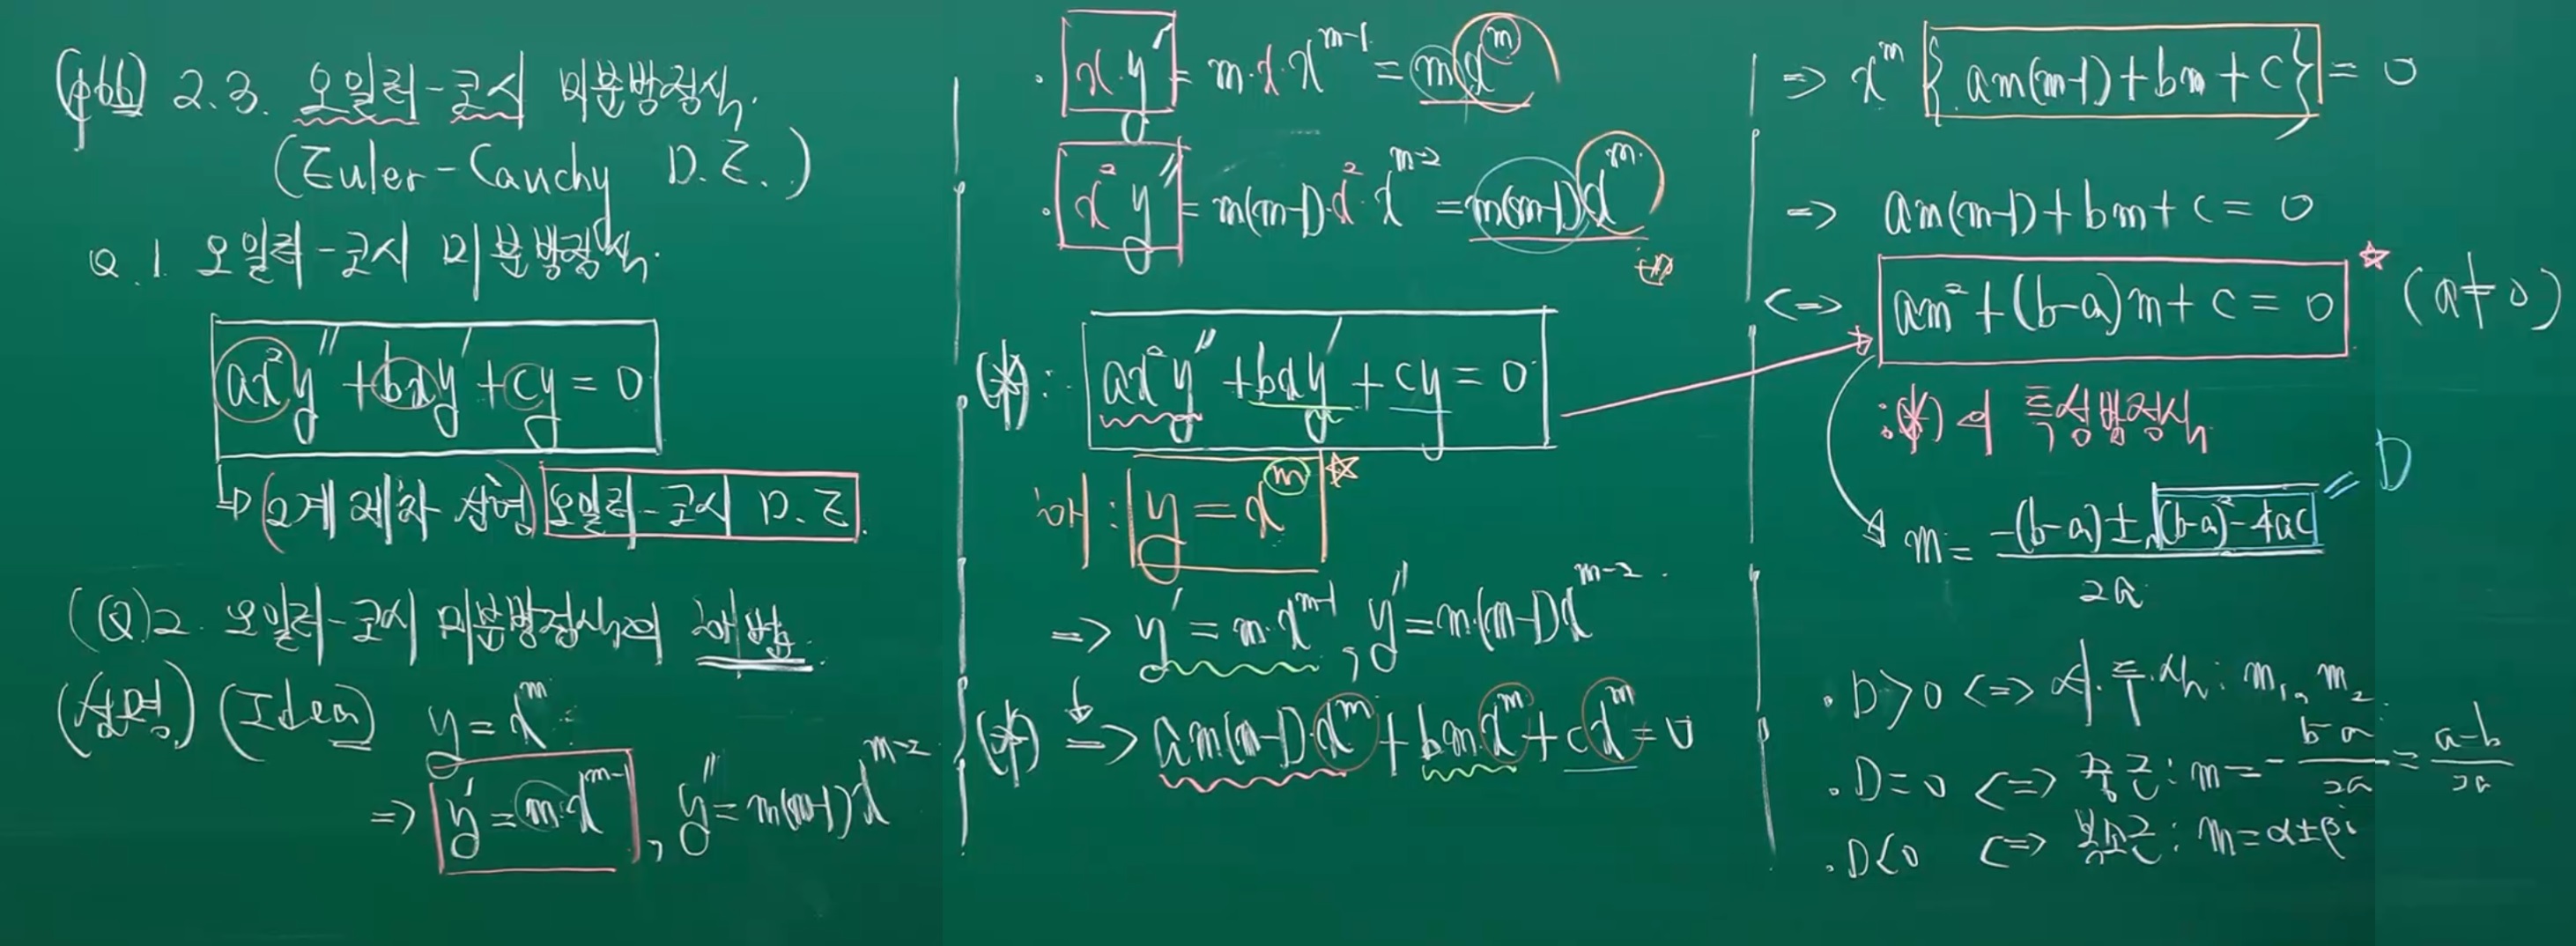 (p66) 2.3. 오일러-코시 미분방정식.
(Euler-Cauchy D.E.)
Q.1. 오일러-코시 미분방정식.
ax²y″ + bxy′ + cy = 0
↳ (2계 제차 상형) 오일러-코시 D.E.
(Q)2. 오일러-코시 미분방정식의 해법.
(설명) (Idea) y = x^m
=> y′ = m·x^(m-1), y″ = m(m-1)x^(m-2)
· x·y′ = m·x·x^(m-1) = m x^m
· x²y″ = m(m-1)·x²·x^(m-2) = m(m-1)x^m
(*): ax²y″ + bxy′ + cy = 0
해: y = x^m ☆
=> y′ = m·x^(m-1), y″ = m·(m-1)x^(m-2).
(*) => am(m-1)·x^m + bm·x^m + cx^m = 0
=> x^m { am(m-1) + bm + c } = 0
=> am(m-1) + bm + c = 0
<=> am² + (b-a)m + c = 0 ☆ (a≠0)
: (*)의 특성방정식
m = (-(b-a) ± √((b-a)² - 4ac)) / 2a = D
· D>0 <=> 서.두.실: m₁, m₂
· D=0 <=> 중근: m = -(b-a)/2a = (a-b)/2a
· D<0 <=> 복소근: m = α±βi